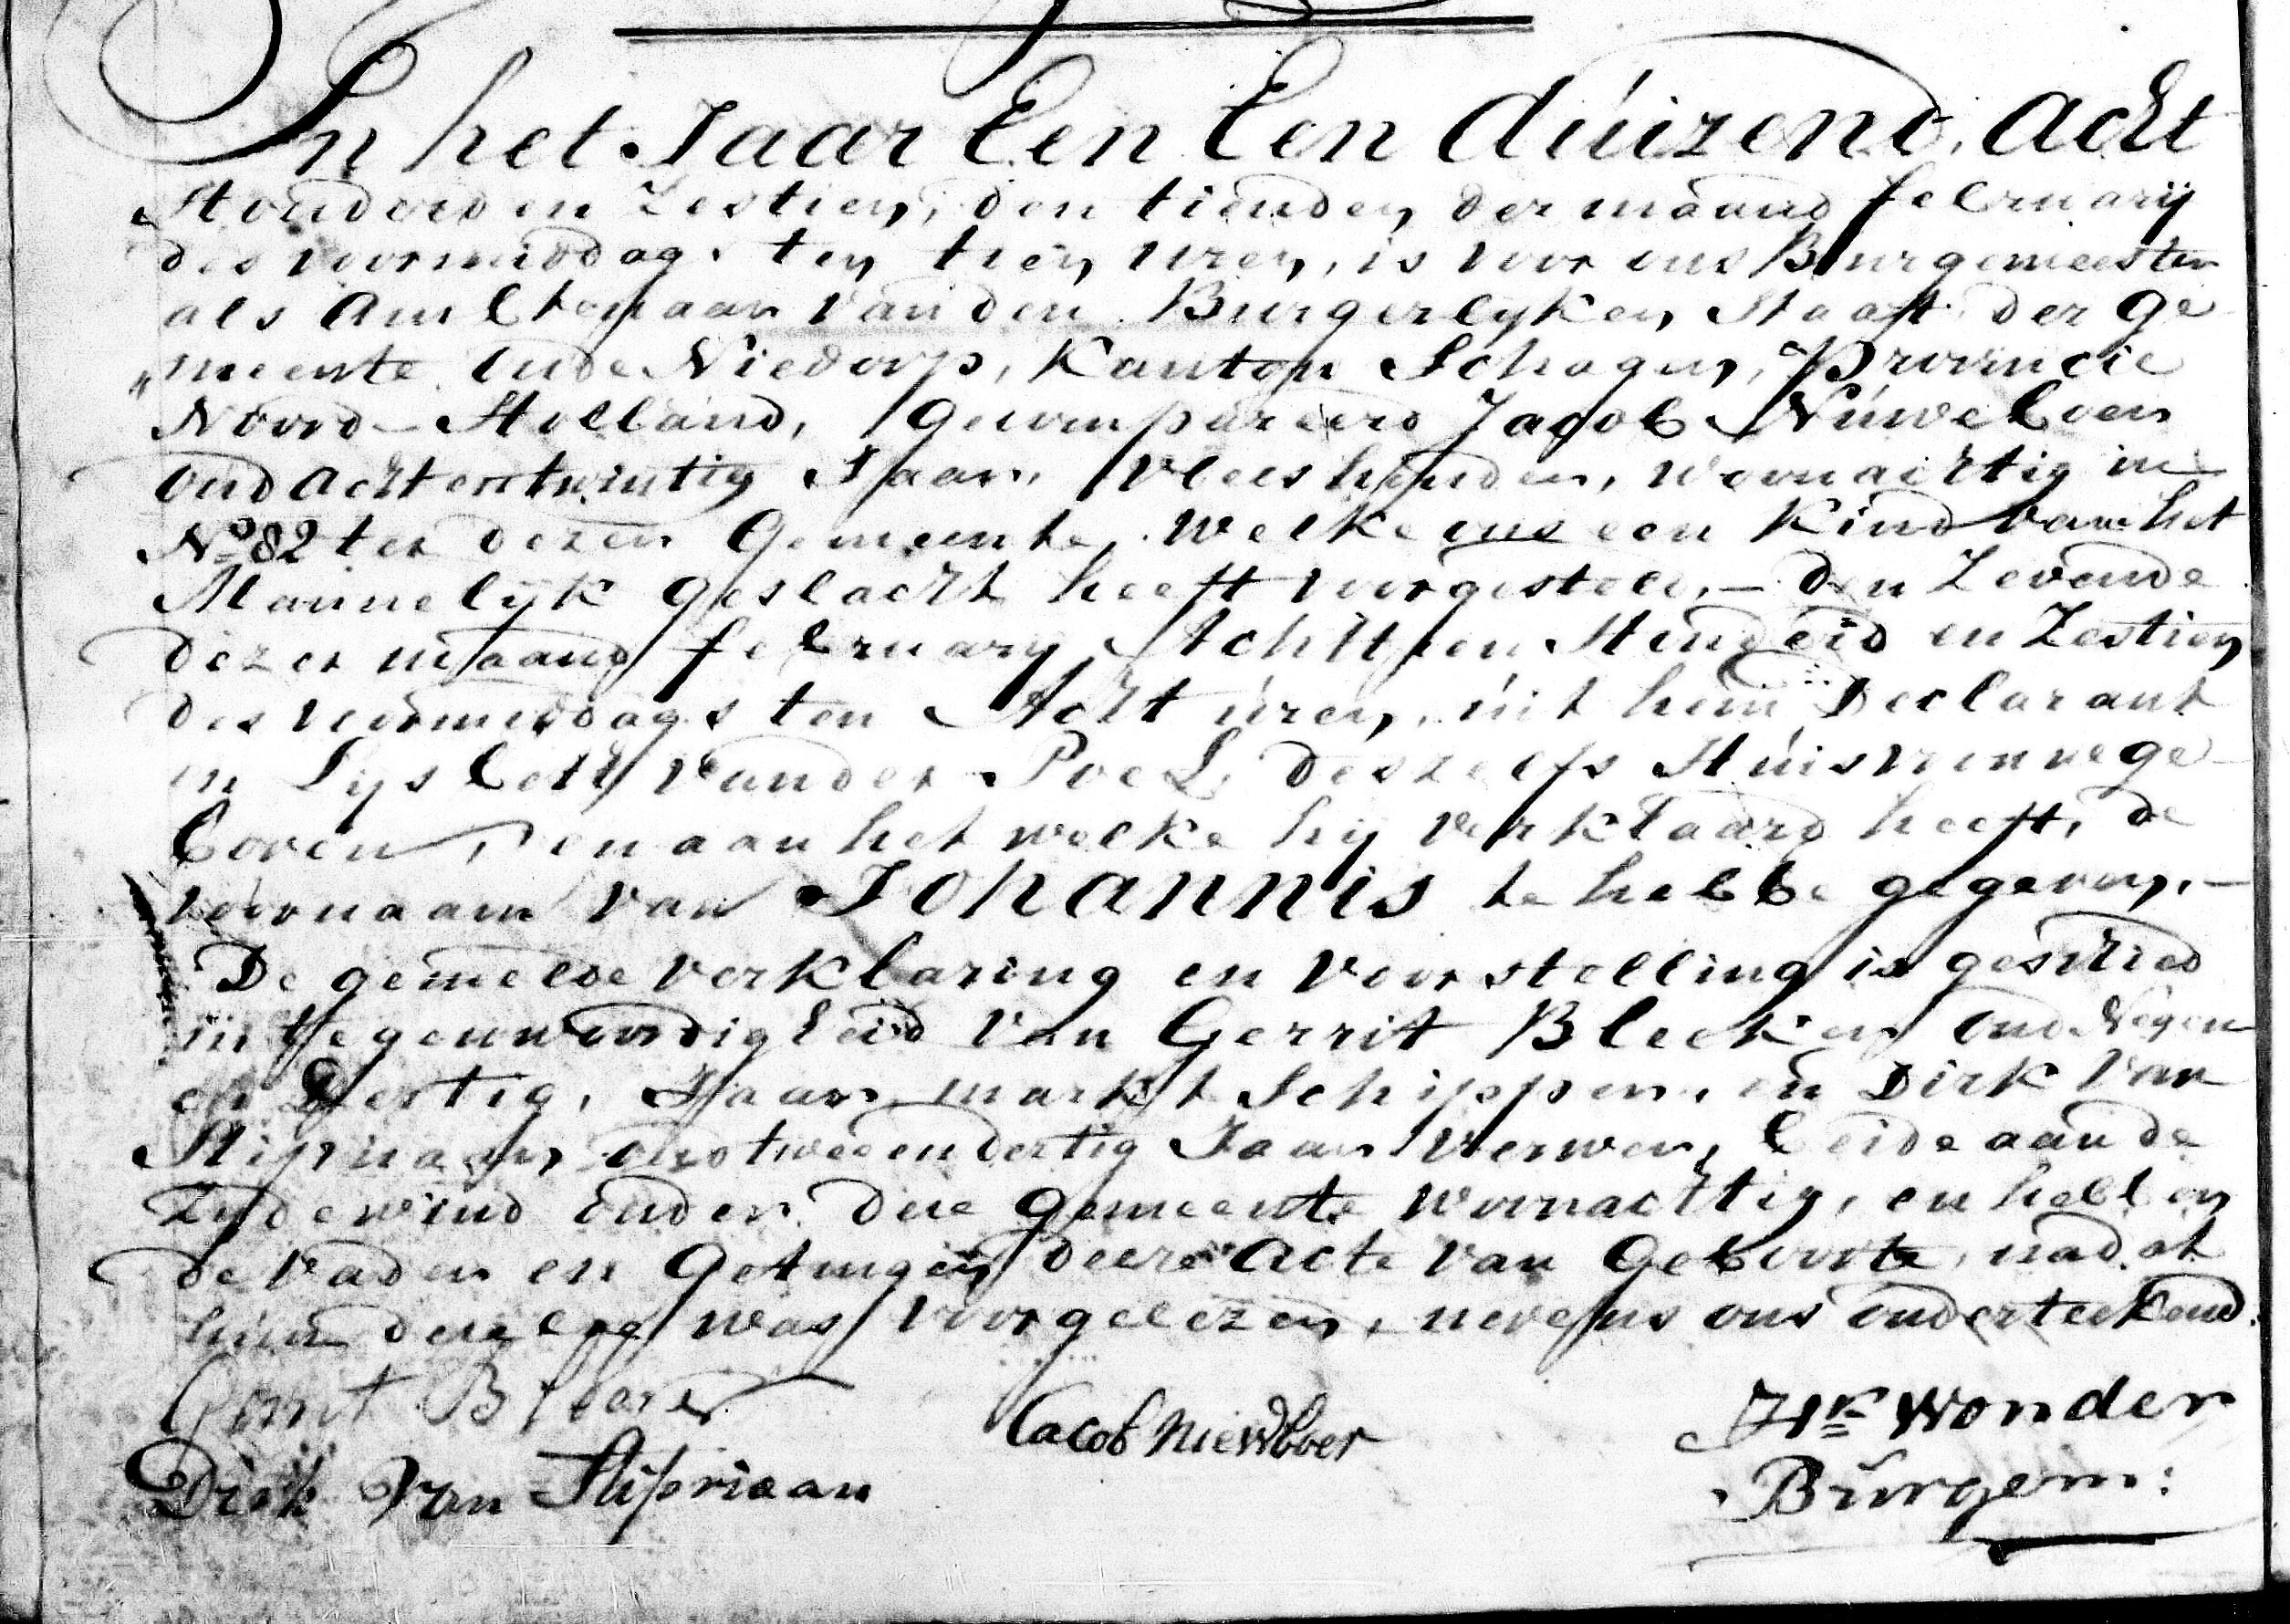 In het Jaar Een Een duizend, acht
Honderd en Zestien, den tienden der maand february
des voormiddags ten tien uren, is voor ons Burgemeester
als Ambtenaar van den Burgerlyken Staat der ge
"meente Oude Niedorp, Kanton Schagen, Provincie
Noord-Holland, gecompareerd Jacob Núweboer
oud achtentwintig Jaar, vleeshouder, woonachtig in
No 82 ter dezer Gemeente, welke ons een Kind van het
Mannelijk geslacht heeft voorgesteld, - den Zevende
dezer maand february Achttien Honderd en Zestien
des voormiddags ten Acht úren, úit hem Declarant
en Lysbeth van der Poel, deszelfs Húisvrouw ge-
boren, en aan het welke hy verklaard heeft, de
voornaam van Johannis te hebbe gegeven, -
De gemelde verklaring en voorstelling is geschied
in tegenwoordigheid van Gerrit Bleeker oud Negen
en Dertig, Jaar markt Schipper, en Dirk van
Stipriaan, oud tweeendertig Jaar Verwer, beide aan de
Zydewind onder deze gemeente woonachtig, en hebben
de vader en Getuigen deeze acte van Geboorte, nadat
hun dezelve was voorgelezen, nevens ons onderteekend.
Gerrit Bleeker
Jacob Niewboer
Hk Wonder
Dirk Van Stipriaan
Burgem: